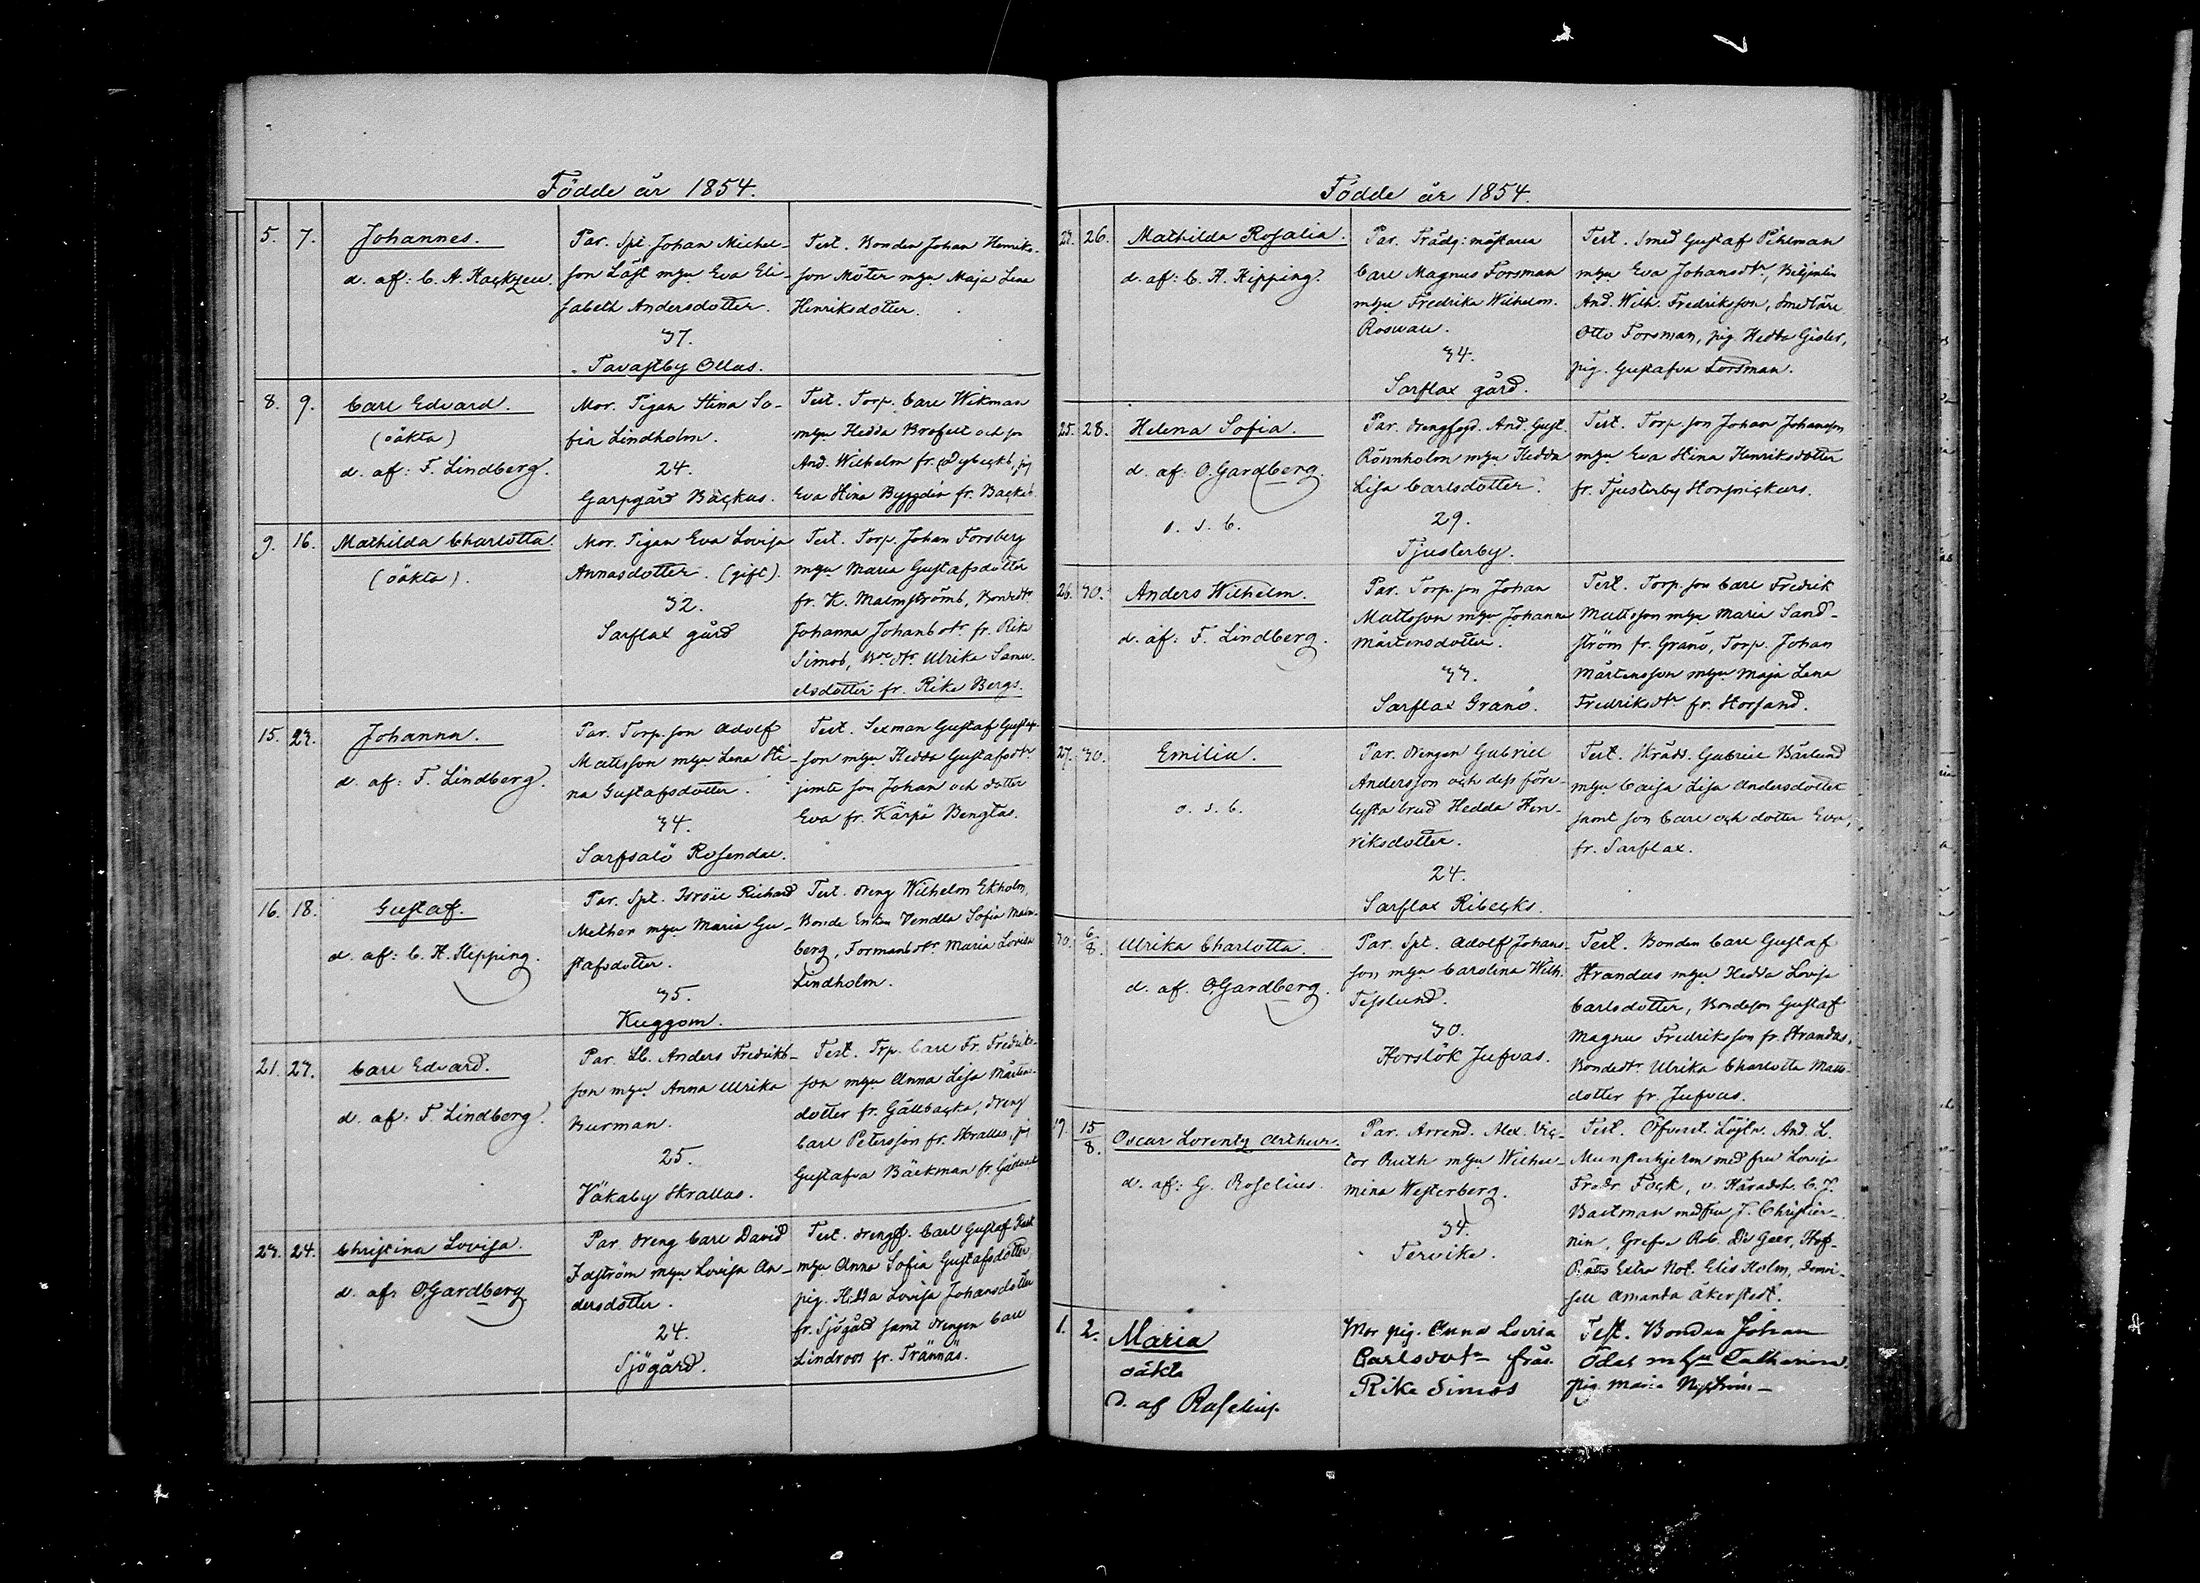 Födde år 1854.
5. 7. Johannes.
d. af: C. A. Hackzell.
Par. Spt. Johan Michel-
son Läst m hu Eva Eli-
sabeth Andersdotter.
37.
Tavastby Ollas.
Test. Bonden Johan Henriks-
son Möter m hu Maja Lena
Henriksdotter.
8. 9. Carl Edvard.
(oäkta)
d. af: F. Lindberg.
Mor. Pigan Stina So-
fia Lindholm.
24.
Garpgård Backus.
Test. Torp. Carl Wikman
m hu Hedda Brofelt och son
And. Wilhelm fr. Dybecks, pig
Eva Stina Byggdén fr. Backus
9. 16. Mathilda Charlotta.
(oäkta).
Mor. Pigan Eva Lovisa
Annasdotter. (gift).
32.
Sarflax gård
Test. Torp. Johan Forsberg
m hu Maria Gustafsdotter
fr. K. Malmströms, Bondedtr
Johanna Johansdtr fr. Rike
Simos, dtr Ulrika Samu-
elsdotter fr. Rike Bergs.
15. 23. Johanna.
d. af: F. Lindberg.
Par. Torp. son Adolf
Mattsson m hu Lena Sti-
na Gustafsdotter.
34.
Sarfsalö Rosendal.
Test. Sexman Gustaf Gustaf-
son m hu Hedda Gustafsdtr
jemte son Johan och dotter
Eva fr. Kärpä Bengtas.
16. 18. Gustaf.
d. af: C. H. Hipping.
Par. Spt. Isroël Richard
Mether m hu Maria Gu-
stafsdotter.
35.
Kuggom.
Test. dreng Wilhelm Ekholm,
Bonde Enkan Vendla Sofia Malm-
berg, Formansdtr Maria Lovisa
Lindholm.
21. 27. Carl Edvard.
d. af: F. Lindberg.
Par. Lb. Anders Fredriks-
son m hu Anna Ulrika
Burman.
25.
Wäkaby Skrallas.
Test. Trp. Carl Fr. Fredriks-
son m hu Anna Lisa Mårtens-
dotter fr. Gällbacka, dreng
Carl Petersson fr. Skrallas, pig
Gustafva Bäckman fr.
23. 24. Christina Lovisa.
d. af: O. Gardberg
Par. dreng Carl David
Idström m hu Lovisa An-
dersdotter.
24.
Sjögård.
Test. drengf. Carl Gustaf
m hu Anna Sofia Gustafsdotter,
pig. Hedda Lovisa Johansdotter
fr. Sjögård samt drengen Carl
Lindroos fr. Trännäs.
Födde år 1854.
23. 26. Mathilda Rosalia.
d. af: C. H. Hipping.
Par. Trädg: mästaren
Carl Magnus Forsman
m hu Fredrika Wilhelm.
Roswall.
34.
Sarflax gård.
Test. Smed Gustaf Pihlman
m hu Eva Johansdtr,
And. Wilh. Fredriksson, Smedlärl
Otto Forsman, pig Hedda Gisler,
pig. Gustafva Forsman.
25. 28. Helena Sofia.
d. af: O. Gardberg.
o. s. b.
Par. drengfogd. And. Gust.
Rönnholm m hu Hedda
Lisa Carlsdotter.
29.
Tjusterby.
Test. Torp. son Johan Johansson
m hu Eva Stina Henriksdotter
fr. Tjusterby Honsnickars.
26. 30. Anders Wilhelm.
d. af: F. Lindberg.
Par. Torp. son Johan
Mattsson m hu Johanna
Mårtensdotter.
33.
Sarflax Granö.
Test. Torp. son Carl Fredrik
Mattsson m hu Maria Sand-
ström fr. Granö, Torp. Johan
Mårtensson m hu Maja Lena
Fredriksdtr fr. Horsand.
27. 30. Emilia.
o. s. b.
Par. drengen Gabriel
Andersson och dess före-
lysta brud Hedda Hen-
riksdotter.
24.
Sarflax Ribecks.
Test. Skrädd. Gabriel Bärlund
m hu Caisa Lisa Andersdotter
samt son Carl och dotter Eva,
fr. Sarflax.
30. 6/8. Ulrika Charlotta.
d. af. O. Gardberg.
Par. Spt. Adolf Johans-
son m hu Carolina Wilh.
Tesslund.
30.
Horslök Jufvas.
Test. Bonden Carl Gustaf
Strandas m hu Hedda Lovisa
Carlsdotter, Bondeson Gustaf
Magnus Fredriksson fr. Strandas,
Bondedtr Ulrika Charlotta Matts-
dotter fr. Jufvas.
19. 15/8. Oscar Lorentz Arthur.
d. af: G. Roselius.
Par. Arrend. Alex. Vic-
tor Ruth m hu Wilhel-
mina Westerberg.
34.
Tervike.
Test. Öfverst. Löjtn. And. L.
Munsterhjelm med fru Lovisa
Fredr. Fock, v. Häradsh. C. J.
Backman med fru J. Christier-
nin, Grefve Rob. De Geer, Hof-
Rätts Extra Not. Elis Holm, demoi-
sell Amanda Åkerstedt.
1. 2. Maria
oäkta
d. af Roselius.
Mor pig. Anna Lovisa
Carlsdotr från
Rike Simos
Test. Bonden Johan
Ödes m hu Catharina.
pig. Maria Nyström -